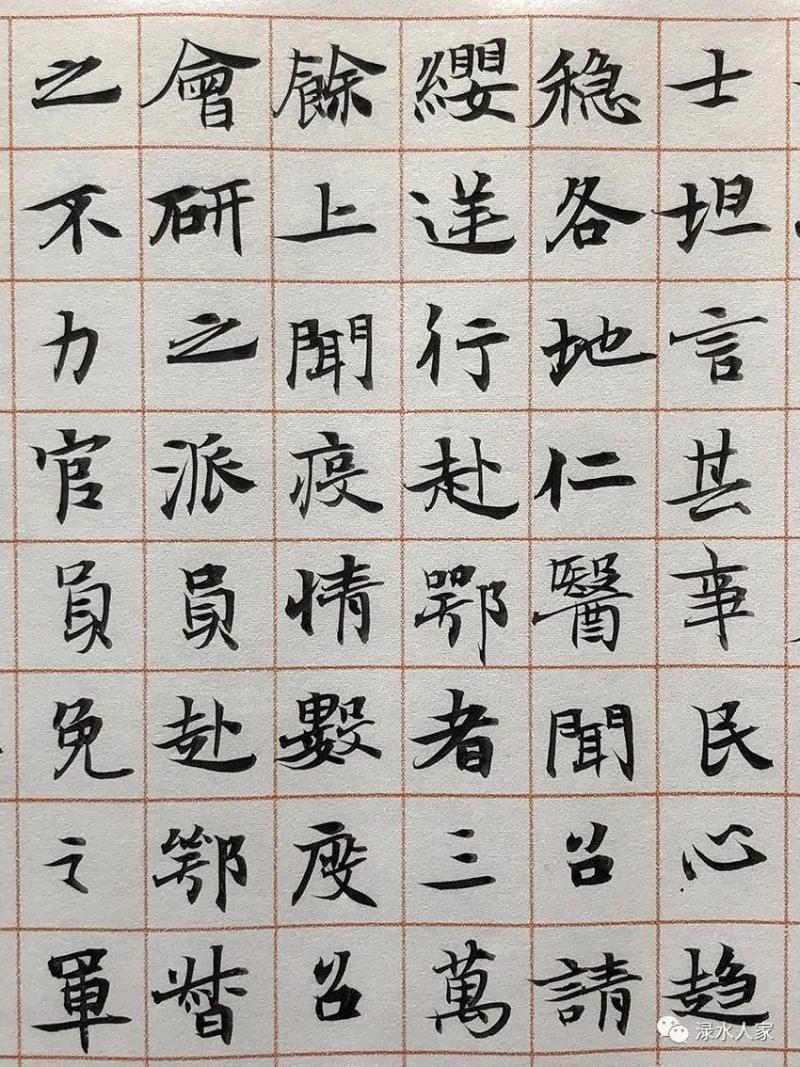 士坦言其事民心趋
稳各地仁醫聞召請
纓逆行赴鄂者三萬
餘上聞疫情數度召
會研之派員赴鄂督
之不力官員免之軍
渌水人家